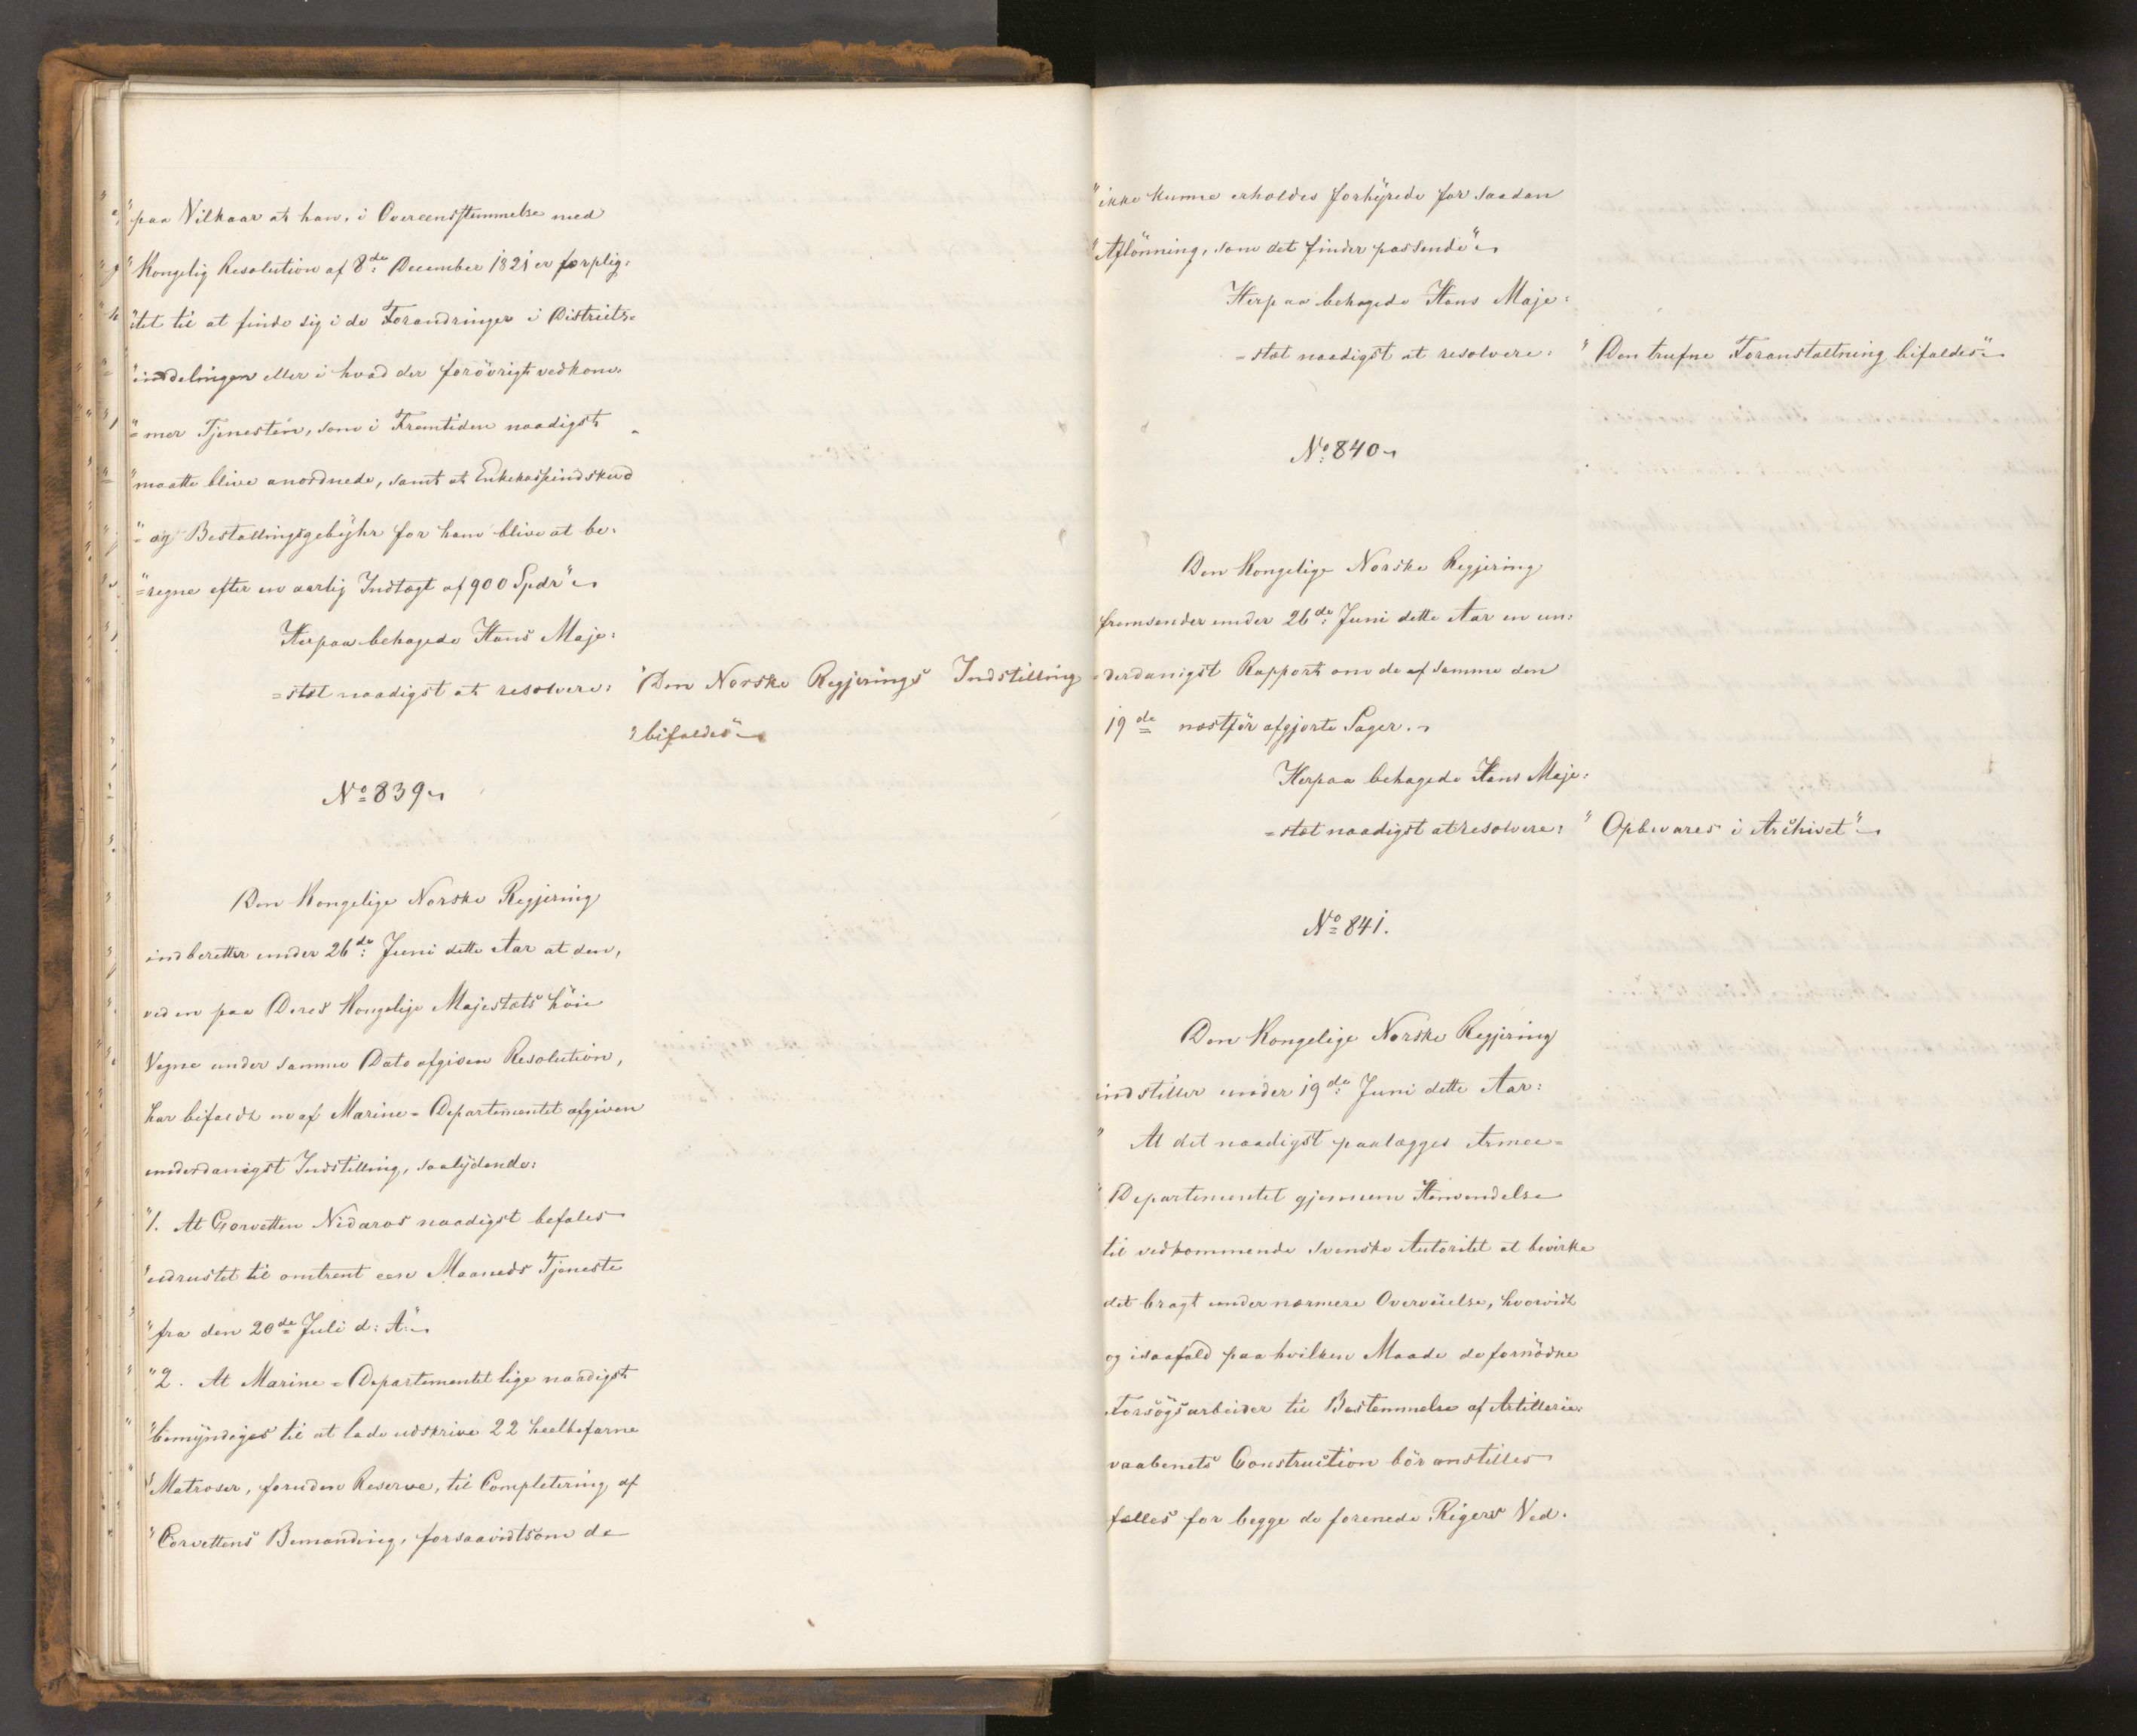 "paa Vilkaar at han, i Overeensstemmelse med
"Kongelig Resolution af 8de December 1821 er forplig:
"tet til at finde sig i de Forandringer i Districts-
"inddelingen eller i hvad der forøvrigt vedkom-
"=mer Tjenesten, som i Fremtiden naadigst
"maatte blive anordnede, samt at Enkekasseindskud
"=og Bestallingsgebyhr for ham blive at be:
"=regne efter en aarlig Indtægt af 900 Spdr"
Herpaa behagede Hans Maje:
=stæt naadigst at resolvere: "Den Norske Regjerings Indstilling
"bifaldes"
No 839
Den Kongelige Norske Regjering
indberetter under 26de Juni dette Aar at den,
ved en paa Deres Kongelige Majestæts høie
Vegne under samme Dato afgiven Resolution,
har bifaldt en af Marine-Departementet afgiven
underdanigst Indstilling, saalydende:
"1. At Corvetten Nidaros naadigst befales
"udrustet til omtrent een Maaneds Tjeneste
"fra den 20de Juli d: A:
"2. At Marine-Departementet lige naadigst
"bemyndiges til at lade udskrive 22 heelbefarne
"Matroser, foruden Reserve, til Completering af
"Corvettens Bemanding, forsaavidtsom de
"ikke kunne erholdes forhyrede for saadan
"Aflønning, som det finder passende"
Herpaa behagede Hans Maje:
=stæt naadigst at resolvere: "Den trufne Foranstaltning bifaldes"
No 840
Den Kongelige Norske Regjering
fremsender under 26de Juni dette Aar en un:
=derdanigst Rapport om de af samme den
19de næstfør afgjorte Sager.
Herpaa behagede Hans Maje:
=stæt naadigst at resolvere: "Opbevares i Archivet"
No 841.
Den Kongelige Norske Regjering
indstiller under 19de Juni dette Aar:
"At det naadigst paalægges Armee-
"Departementet gjennem Henvendelse
til vedkommende svenske Autoritet at bevirke
det bragt under nærmere Overveielse, hvorvidt
og isaafald paa hvilken Maade de fornødne
Forsøgsarbeider til Bestemmelse af Artillerie-
vaabenets Construction bør anstilles
fælles for begge de forenede Rigers Ved-